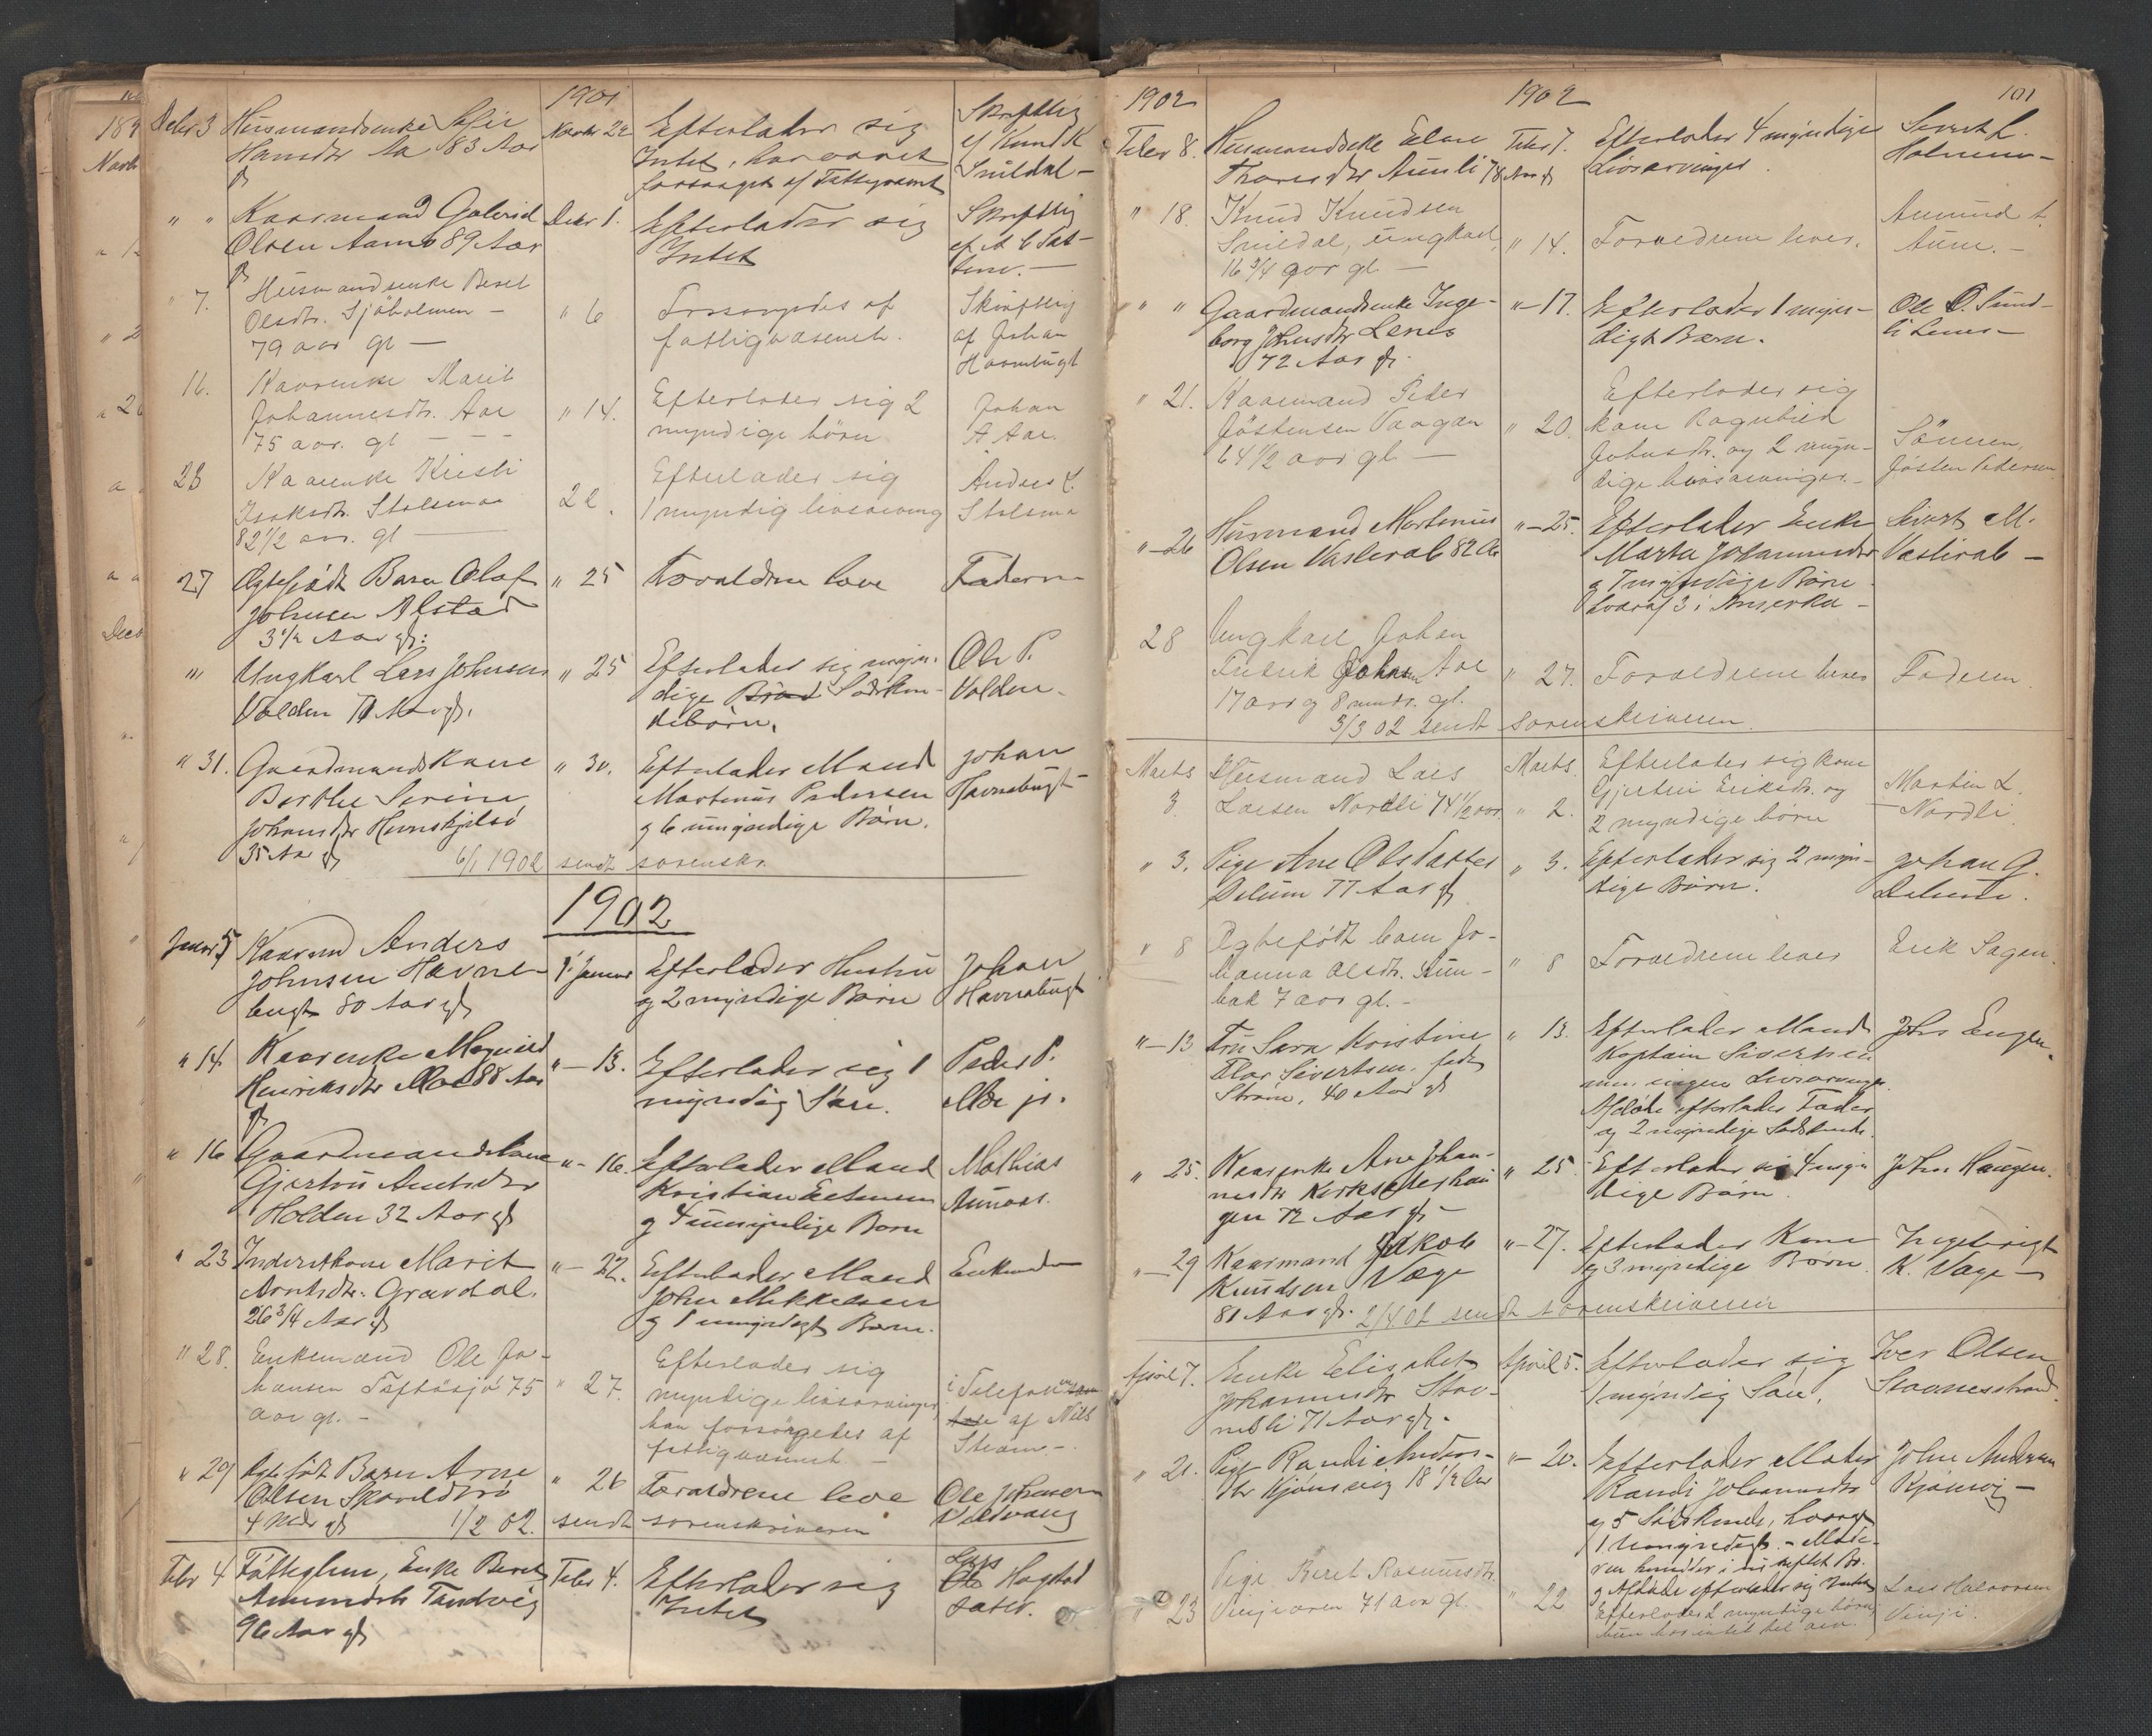 1901
Decbr 3 Husmandsenke
Hansdtr Aa 83 Aar
gl
Novbr 22 Efterlader sig
Intet, har været
forsørget af Fattigvæsenet
Skriftlig
af Knud K
Snildal -
" " Kaarmand Gabriel
Olsen Aamo 89 Aar
gl
Decbr 1. Efterlader sig
Intet
Skriftlig
af A
" 7. Husmandsenke Beret
Olsdtr. Sjøholmen -
79 aar gl -
" 6 Forsørgedes af
fattigvæsenet.
Skriftlig
af Johan
Havnbugt
16. Kaarenke Marit
Johannesdtr. Aae
75 aar. gl - - -
" 14. Efterlader sig 2
myndige börn
Johan
A Aae.
23 Kaarenke Kirsti
Isaksdr. Stolsmo
82 1/2 aar. gl -
22. Efterlader sig
1 myndig livsarving
Anders
Stolsmo
27 Ægtefødt Barn Olaf
Johnsen Alstad
3 1/2 Aar gl:
" 25 Forældrene leve
Faderen
" " Ungkarl Lars Johnsen
Volden 70 Aar gl.
" 25 Efterlader sig myn-
dige Sødsken-
debörn.
Ole P.
Volden.
" 31. Gaardmandskone
Berthe Serine
Johansdtr
35 Aar gl
" 30. Efterlader Mand
Martinus Pedersen
og 6 umyndige Børn.
Johan
Havnebugt
6/1 1902 sendt sorenskr.
1902
Januar 5 Kaarmd Anders
Johnsen Havne-
bugt 80 Aar gl
1' Januar Efterlader Hustru
og 2 myndige Børn
Johan
Havnebugt
" 14. Kaarenke Magnild
Henriksdtr Moe 88 Aar
gl
" - 13. Efterlader sig 1
myndig Søn.
Peder P.
Moe jr.
" 16 Gaardmandskone
Gjertru Arntsdtr
Holden 32 Aar gl
" - 16. Efterlader Mand
Kristian Estensen
og 4 umyndige Børn
Mathias
Aunaas.
" 23 Inderstkone Marit
Arntsdtr. Gravdal.
26 3/4 Aar gl
" - 22. Efterlader Mand
John Mikkelsen
og 1 umyndigt Barn.
Enkemand
" 28. Enkemand Ole Jo-
hansen Taftösjö 75
aar gl. -
" 27. Efterlader sig
myndige livsarvinger,
han forsörgedes af
fattigvæsenet -
i Telefon
af Nils
Ström. -
" 29 Ægtefødt Barn Arne
Olsen
4 Mdr gl
" 26 Forældrene leve
Ole Johnsen
1/2 02. sendt sorenskriveren
Febr 4 Fattiglem, Enke Beret
Amundsdtr Tandvig
96 Aar gl
Febr 4. Efterlader sig
Intet
Lars
Hagtad
sæter.
1902
1902
101
Febr 8. Husmandsenke Elen
Thoresdtr Aunli 78 Aar gl
Febr 7. Efterlader 4 myndige
Livsarvinger
Sivert L.
Holmen -
" 18. Knud Knudsen
Snildal, ungkarl,
16 3/4 aar gl -
" 14. Forældrene lever.
Amund
Aune. -
" " Gaardmandsenke Inge-
borg Johnsdtr Lenes
72 Aar gl.
" - 17. Efterlader 1 myn-
digt Barn.
Ole O. Sund-
li Lenes -
" 21. Kaarmand Peder
Jöstensen Vaagan
64 1/2 aar gl -
" 20. Efterlader sig
kone Ragnhild
Johnsdtr. og 2 myn-
dige livsarvinger. -
Sönnen,
Jösten Pedersen
" - 26 Husmand Martinus
Olsen Vasleral 82 Aar
" - 25. Efterlader Enke
Marta Johannesdtr
og 7 myndige Børn
hvoraf 3 i Amerika -
Sivert M.
Vasleral -
28 Ungkarl Johan
Fredrik Johnsen Aae
17 aar og 8 mndr. gl.
" 27. Forældrene lever
Faderen.
3/3 02 sendt sorenskriveren.
Marts 3 Husmand Lars
Larsen Nordli 74 1/2 aar
Marts " 2. Efterlader sig kone
Gjertru Eriksdtr. og
2 myndige börn
Martin L.
Nordli
" 3. Pige Ane Olsdatter
Belum 77 Aar gl
" 3. Efterlader sig 2 myn-
dige Børn.
Johan G.
Belum.
" 8 Ægtefödt barn Jo-
hanna Olsdtr.
7 aar gl. -
" 8 Forældrene lever
Erik Sagen.
" - 13 Fru Sara Kristine
Sivertsen. født
Strøm, 40 Aar gl
" 13. Efterlader Mand
Kaptein Sivertsen
men ingen Livsarvinger.
Afdøde efterlader Fader
og 2 myndige Sødskende.
Johs Engen.
" 25. Kaarenke Ane Johan-
nesdtr Kirksæterhau-
gen 72 Aar gl -
" 25 - Efterlader sig 4 myn
dige Børn.
John Haugen.
" - 29 Kaarmand Jakob
Knudsen Vaage
81 Aar gl.
" - 27. Efterlader Kone
og 3 myndige Børn.
Ingebrigt
K. Vaage -
2/4 02 sendt sorenskriveren
April 7. Enke Elisabet
Johannesdtr Stav-
nesli 71 Aar gl.
April 5. Efterlader sig
1 myndig Søn.
Iver Olsen
Stavnesstrand.
" 21. Pige Randi Anders-
dtr Kjønsvig 18 1/2 Aar
" - 20. Efterlader Moder
Randi Johannesdtr
og 5 Sødskende, hvoraf
1 Umyndigt. - Mode-
ren hensidder i uskiftet Bo.
og Afdøde efterlader sig Intet
John Andersen
Kjønsvig -
" 23 Pige Beret Rasmusdtr.
Vinjeøren 71 aar gl.
" 22 Efterlader 2 myndige börn,
hun har intet
Lars Halvorsen
Vinje.